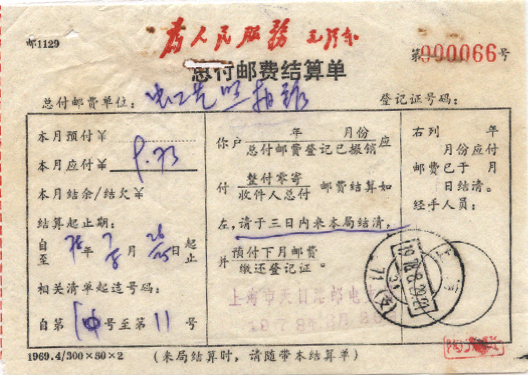 邮1129
为人民服务 毛泽东
第000066号
总付邮费结算单
总付邮费单位：
登记证号码：
本月预付￥
本月应付￥ 9.73
本月结余/结欠￥
结算起止期：
自 78年 7月 26日起
至 8 25 止
相关清单起迄号码：
自第 号至第 11 号
你户 年 月份应
总付邮费登记已报销
付 整付零寄 邮费结算如
收件人总付
左，请于三日内来本局结清，
并 预付下月邮费
缴还登记证。
上海市天目路邮电
右列 年
月份应付
邮费已于 月
日结清。
经手人员：
1969.4/300×50×2
（来局结算时，请随带本结算单）